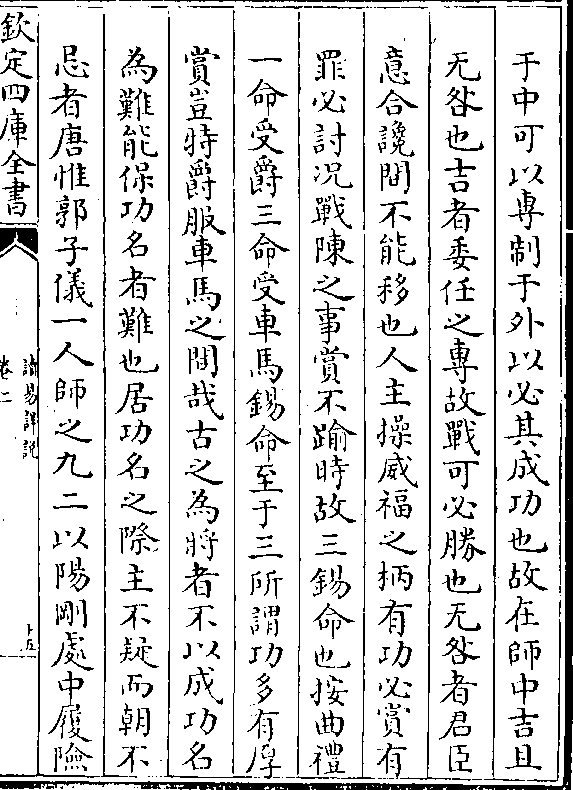 于中可以專制于外以必其成功也故在師中吉且
无咎也吉者委任之專故戰可必勝也无咎者君臣
意合讒間不能移也人主操威福之柄有功必賞有
罪必討况戰陳之事賞不踰時故三錫命也按曲禮
一命受爵三命受車馬錫命至于三所謂功多有厚
賞豈特爵服車馬之間哉古之為將者不以成功名
為難能保功名者難也居功名之際主不疑而朝不
忌者唐惟郭子儀一人師之九二以陽剛處中履險
欽定四庫全書
讀易詳說
卷二
十五